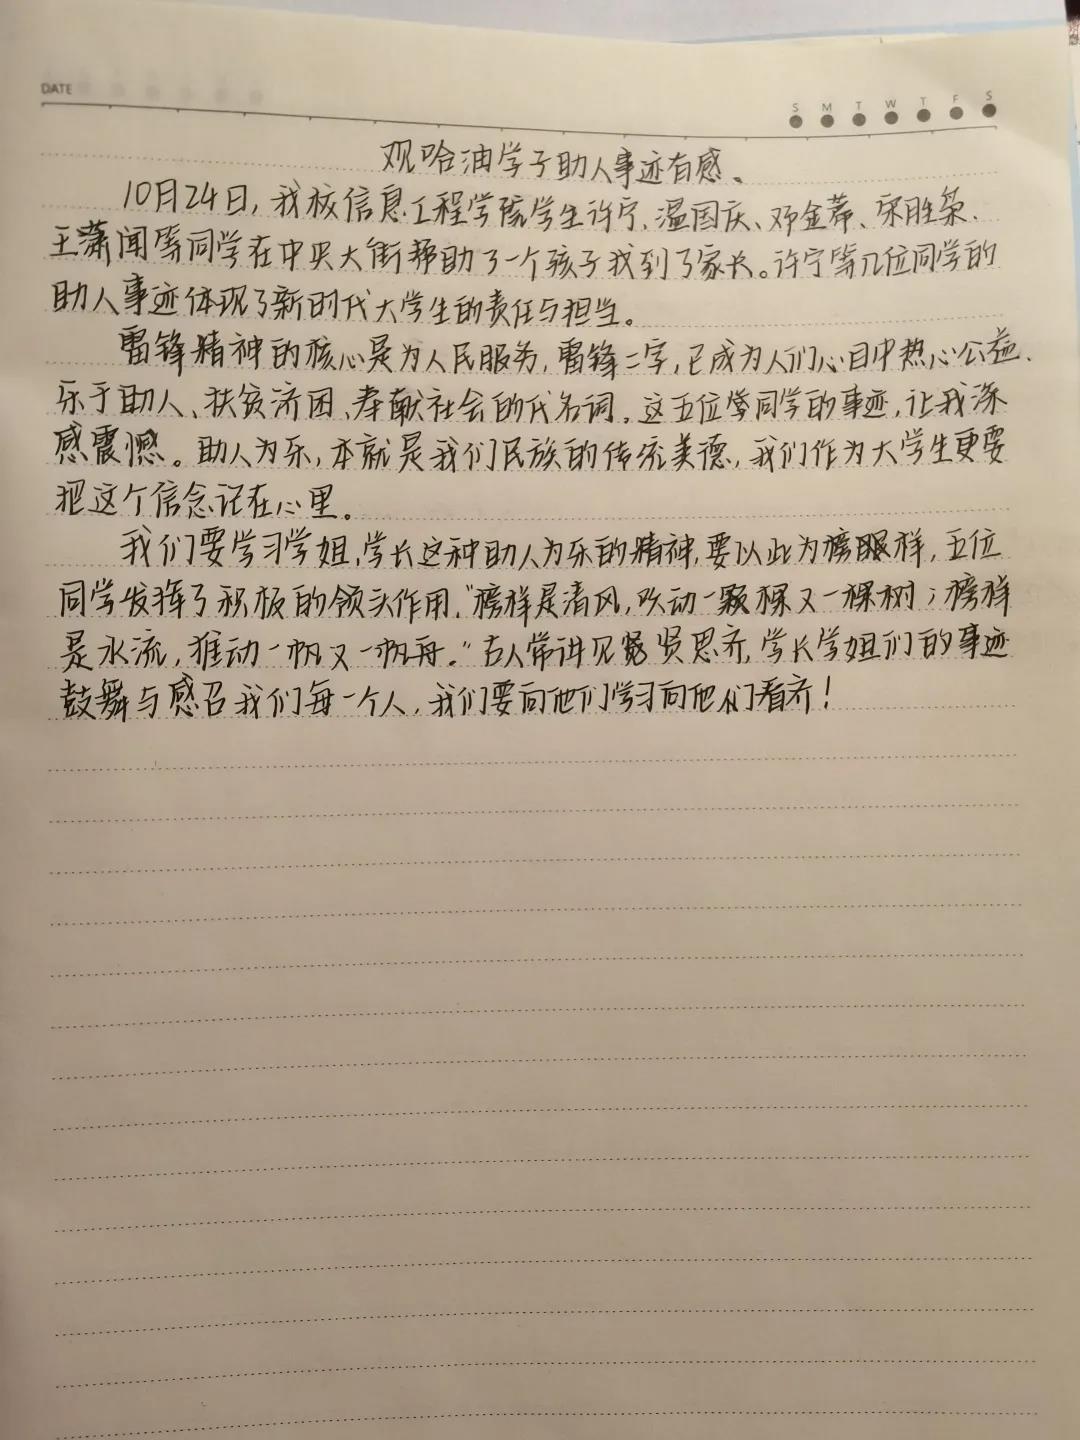 DATE
S M T W T F S
观哈油学子助人事迹有感。
10月24日，我校信息工程学院学生许宁、温国庆、邓金希、宋胜枭、
王潇闻等同学在中央大街帮助了一个孩子找到了家长。许宁等几位同学的
助人事迹体现了新时代大学生的责任与担当。
雷锋精神的核心是为人民服务，雷锋二字，已成为人们心目中热心公益、
乐于助人、扶贫济困、奉献社会的代名词。这五位学同学的事迹，让我深
感震憾。助人为乐，本就是我们民族的传统美德，我们作为大学生更要
把这个信念记在心里。
我们要学习学姐，学长这种助人为乐的精神，要以此为榜样，五位
同学发挥了积极的领头作用，“榜样是清风，吹动一颗棵又一棵树；榜样
是水流，推动一帆又一帆舟。”古人常讲见贤思齐，学长学姐们的事迹
鼓舞与感召我们每一个人，我们要向他们学习向他们看齐！